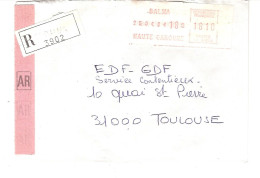 BALMA
HAUTE GARONNE
R
3902
AR
AR
AR
EDF-GDF
Service Contentieux
10 Quai St Pierre
31000 TOULOUSE